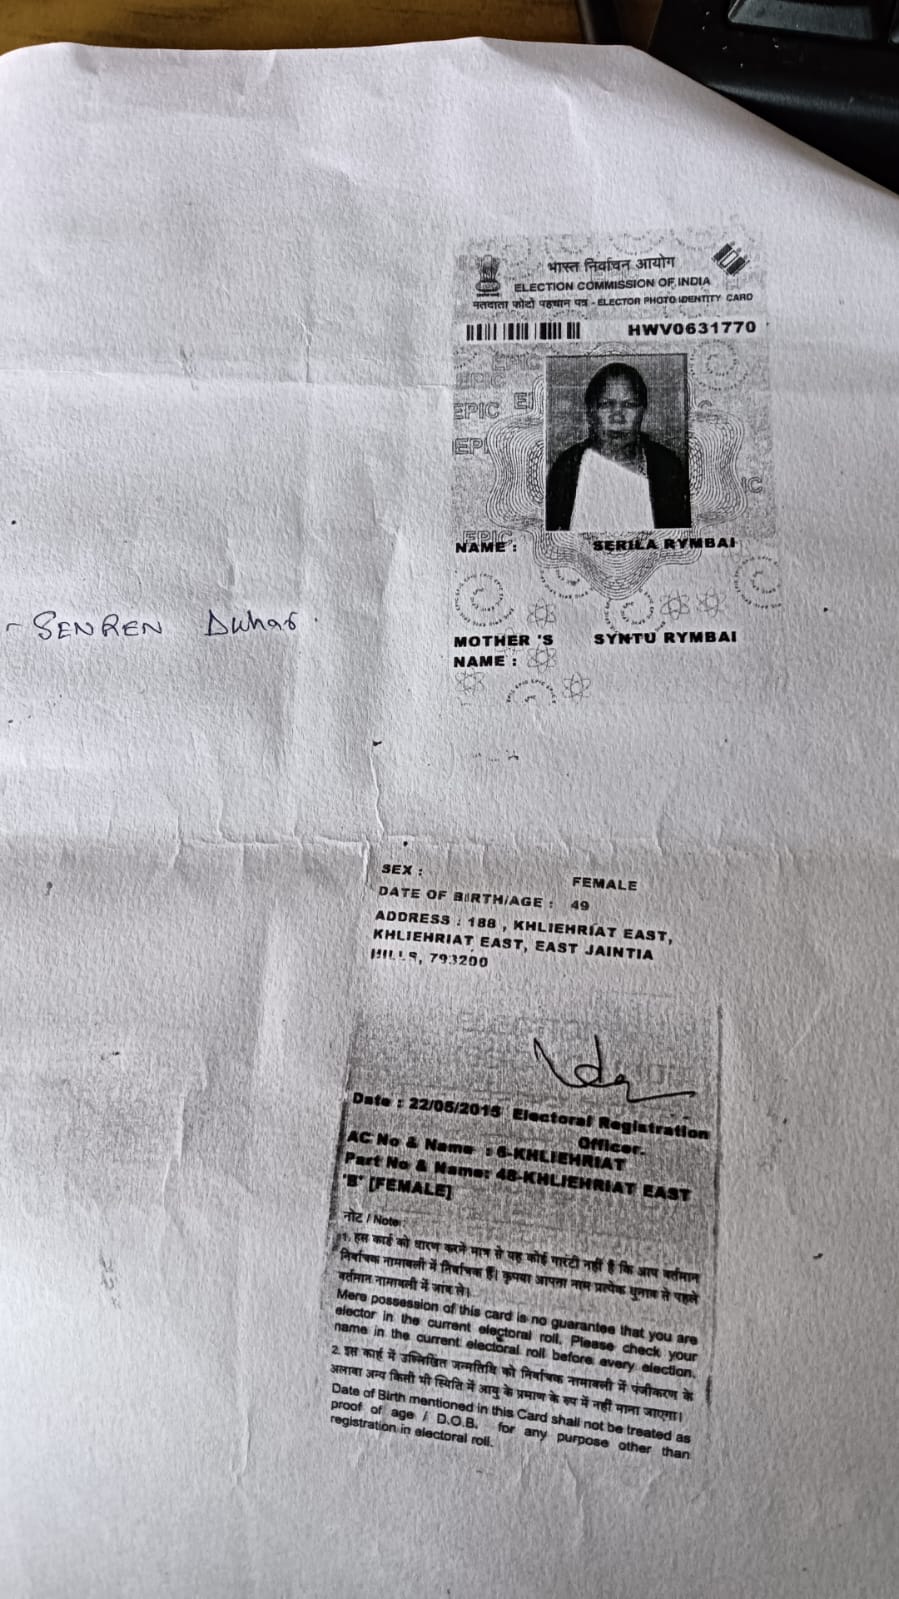 भारत निर्वाचन आयोग
ELECTION COMMISSION OF INDIA
मतदाता फोटो पहचान पत्र - ELECTOR PHOTO IDENTITY CARD
HWV0631770
EPIC
EPIC
EPIC
NAME : SERILA RYMBAI
- SENREN Dkhar.
MOTHER 'S SYNTU RYMBAI
NAME :
SEX : FEMALE
DATE OF BIRTH/AGE : 49
ADDRESS : 188 , KHLIEHRIAT EAST,
KHLIEHRIAT EAST, EAST JAINTIA
HILLS, 793200
Date : 22/05/2015 Electoral Registration
Officer.
AC No & Name : 6-KHLIEHRIAT
Part No & Name: 48-KHLIEHRIAT EAST
'B' [FEMALE]
नोट / Note:
1. इस कार्ड को धारण करने मात्र से यह कोई गारंटी नहीं है कि आप वर्तमान
निर्वाचक नामावली में निर्वाचक हैं। कृपया आपना नाम प्रत्येक चुनाव से पहले
वर्तमान नामावली में जांच ले।
Mere possession of this card is no guarantee that you are
elector in the current electoral roll. Please check your
name in the current electoral roll before every election.
2. इस कार्ड में उल्लिखित जन्मतिथि को निर्वाचक नामावली में पंजीकरण के
अलावा अन्य किसी भी स्थिति में आयु के प्रमाण के रूप में नहीं माना जाएगा।
Date of Birth mentioned in this Card shall not be treated as
proof of age / D.O.B. for any purpose other than
registration in electoral roll.